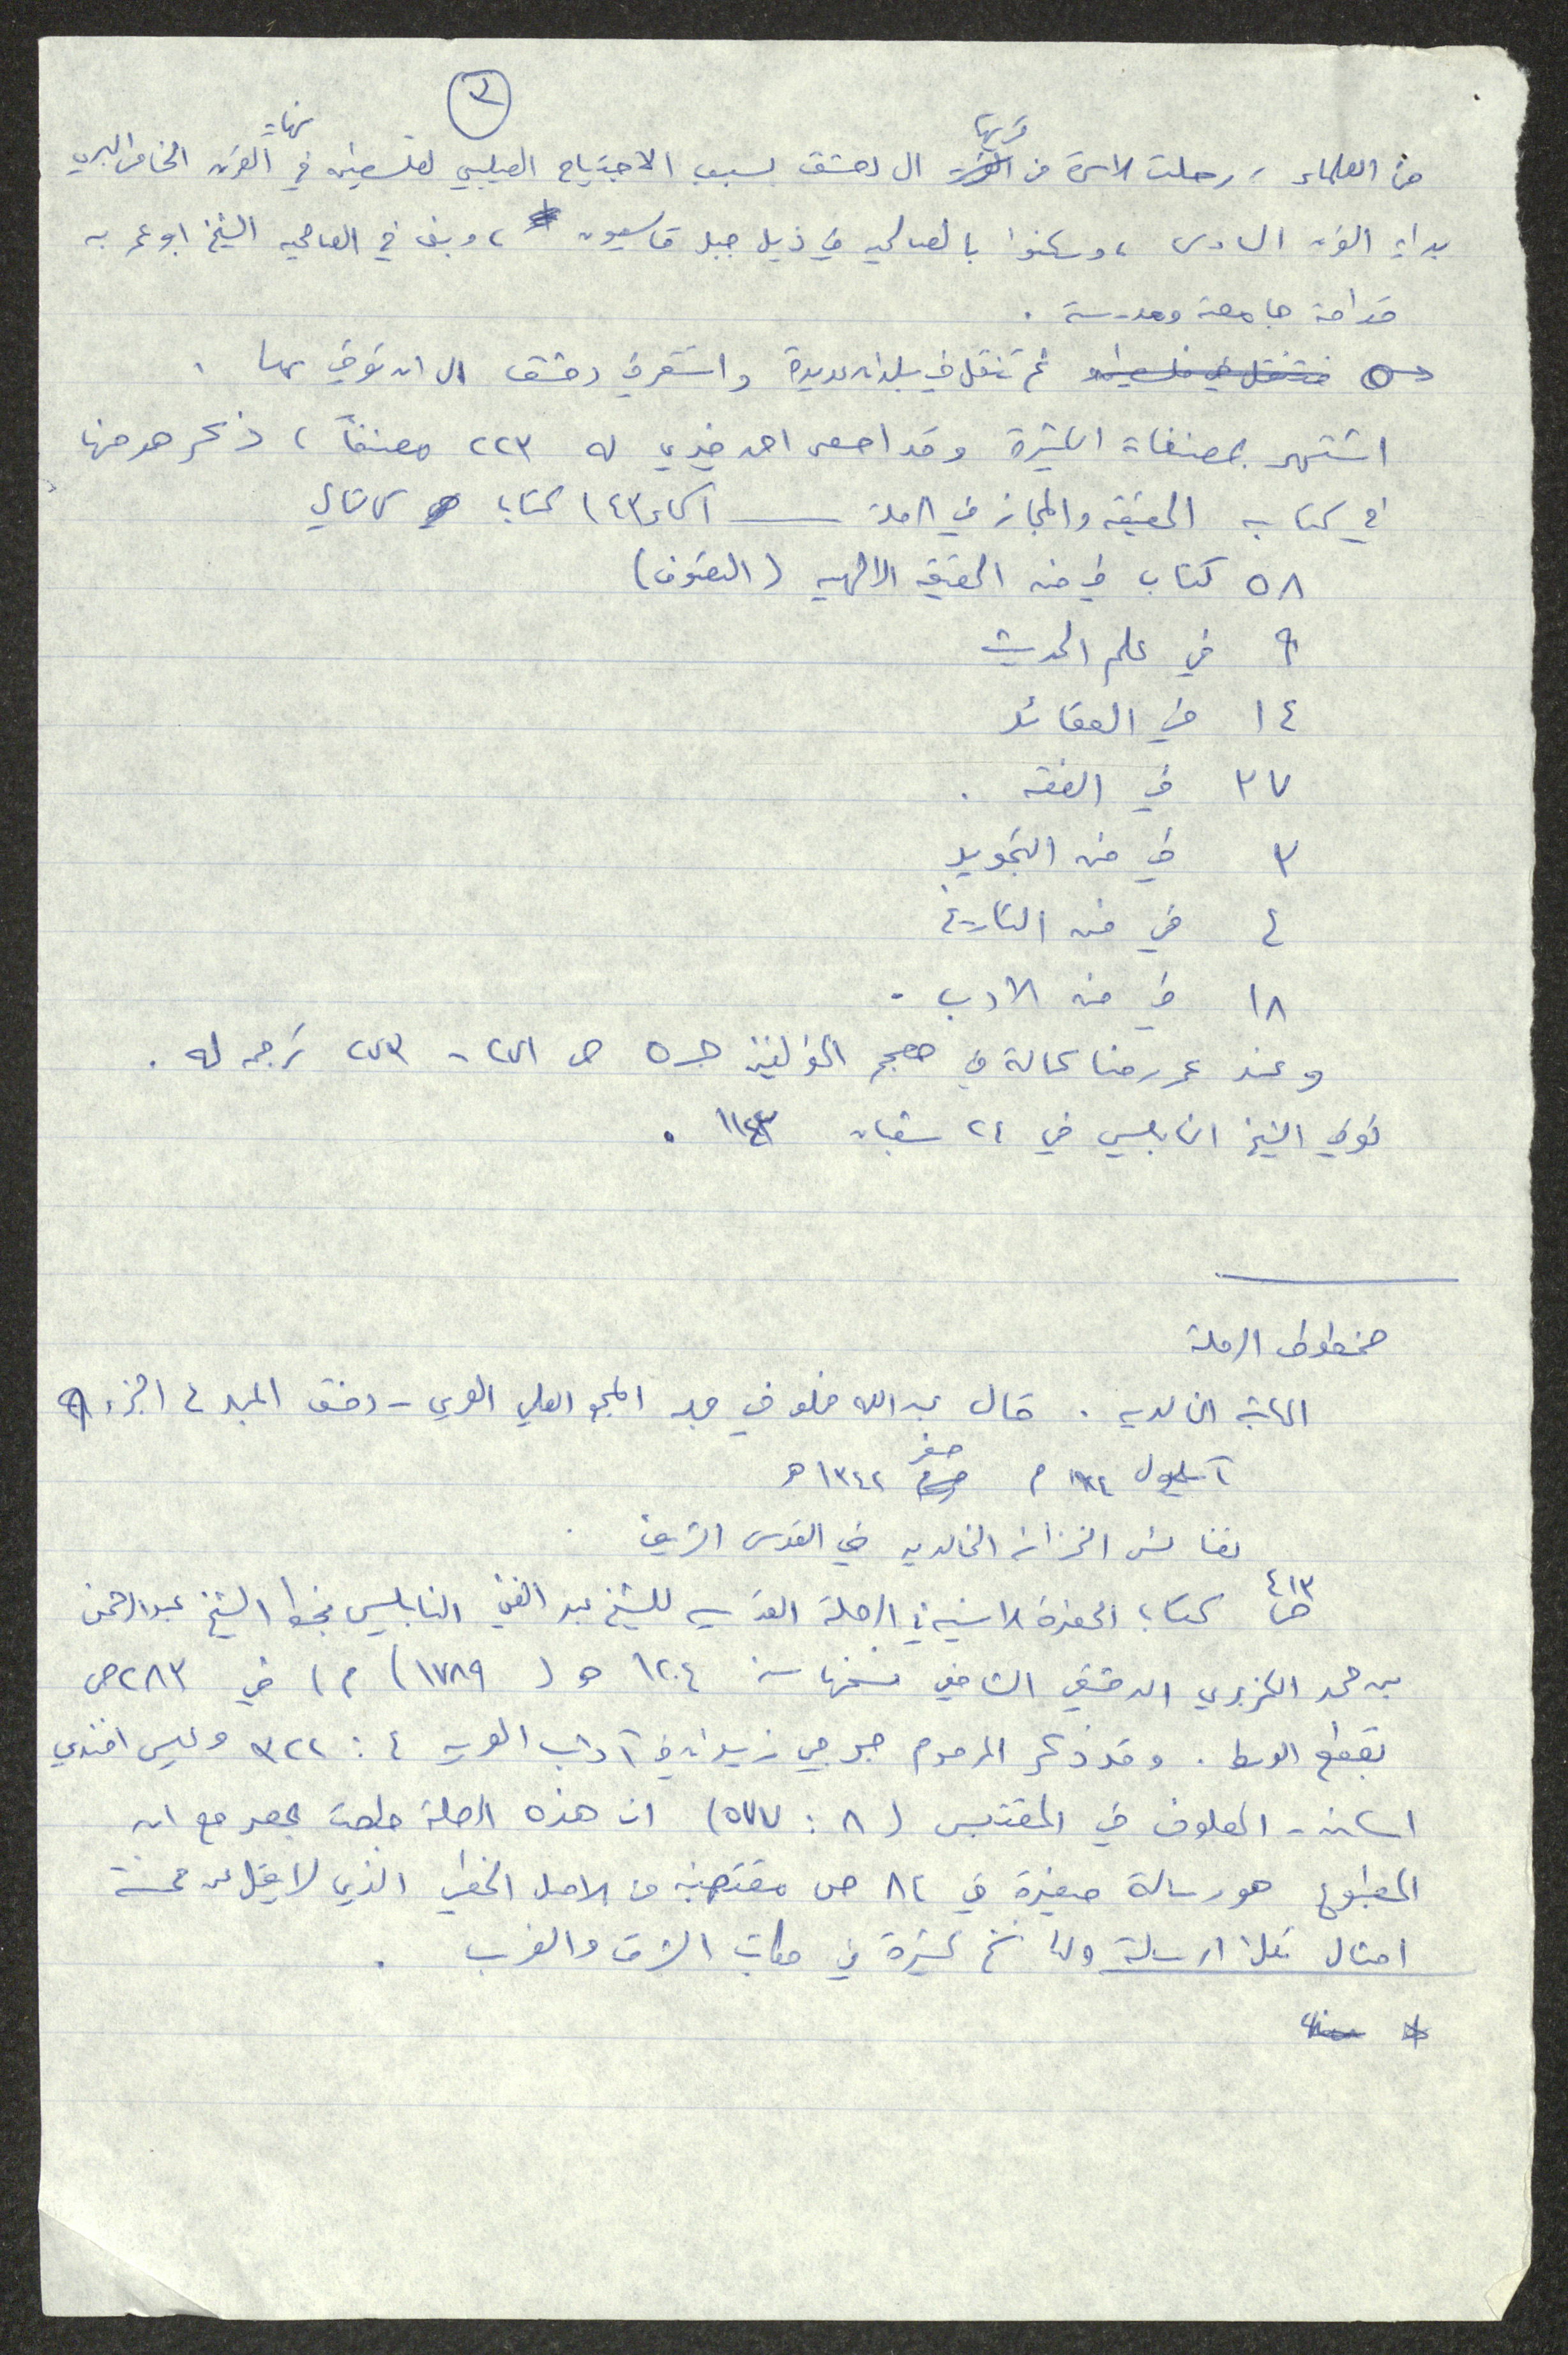 ٣
من العلماء ، رحلت الاسرة من قريتها الى دمشق بسبب الاجتياح الصليبي لفلسطين في نهاية القرن الخامس الهجري
بداية القرن السادس ، وسكنوا بالصالحيه في ذيل جبل قاسيون ، وبنى في الصالحيه الشيخ ابو عمر بن
قدامة جامعة ومدرسة .
ثم تنقل في بلدان عديدة واستقر في دمشق الى ان توفي بها .
اشتهر بمصنفاته الكثيرة وقد احصى احمد خيري له ٢٢٣ مصنفاً ، ذكر هو منها
في كتابه الحقيقه والمجاز في الرحلة اسماء ١٤٣ كتابا كالتالي
٥٨ كتاب في فن الحقيقه الالهيه (التصوف)
٩ في علم الحديث
١٤ في العقائد
٣٧ في الفقه .
٣ في فن التجويد
٤ في فن التاريخ
١٨ في فن الادب .
وعند عمر رضا كحالة في معجم المؤلفين جـ ٥ ص ٢٧١ - ٢٧٣ ترجمه له .
توفي الشيخ النابلسي في ٢٤ شعبان ١١٤٣ .
مخطوط الرحلة
المكتبة الخالديه . قال عبدالله مخلص في مجلة المجمع العلمي العربي - دمشق المجلد ٤ الجزء ٩
آيلول ١٩٢٤ م صفر ١٣٤٢ هـ
نفائس الخزانة الخالديه في القدس الشريف .
ص ٤١٣ كتاب الحضرة الانسيه في الرحلة القدسيه للشيخ عبد الغني النابلسي بخط الشيخ عبدالرحمن
بن محمد الكزبري الدمشقي الشافعي نسخها سنة ١٢٠٤ هـ ( ١٧٨٩ م ) في ٢٨٣ ص
بقطع الوسط . وقد ذكر المرحوم جرجي زيدان في آداب العربيه ٤ : ٣٢٢ وعيسى افندي
اسكندر المعلوف في المقتبس ( ٨ : ٥٧٧ ) ان هذه الرحلة طبعت بمصر مع ان
المطبوع هو رسالة صغيرة في ٨٢ ص مقتضبه من الاصل الخطي الذي لا يقل عن خمسة
امثال تلك الرسالة ولها نسخ كثيرة في مكاتب الشرق والغرب .
*